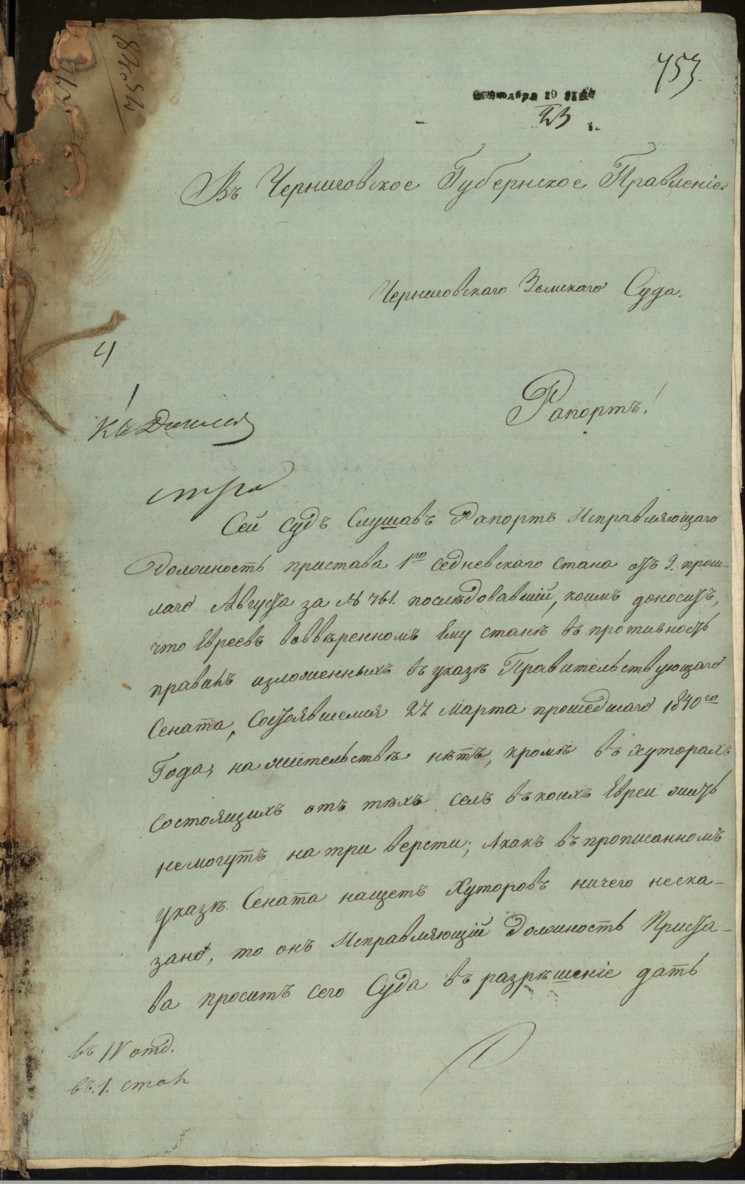 753
23
Въ Черниговское Губернское Правленіе
Черниговскаго Земскаго Суда.
4
Рапортъ!
Сей судъ Слушавъ Рапортъ Исправляющаго
Должность пристава 1го Седневскаго Стана отъ 9. прош-
лаго Августа за № 761. последовавшій, коимъ доноситъ,
что Евреевъ вовверенномъ Ему стане въ противность
правилъ изложенныхъ въ указе Правительствующаго
Сената, Состоявшемся 27 Марта прошедшаго 1840го
Года, на жительстве нетъ, кроме въ хуторахъ
состоящихъ отъ техъ селъ въ коихъ Евреи жить
не могутъ на три версти; А какъ въ прописанномъ
указе Сената нащетъ Хуторовъ ничего неска-
зано, то онъ Исправляющій Должность Приста-
ва проситъ сего Суда въ разрѣшеніе дать
въ IV отд.
въ 1. стол